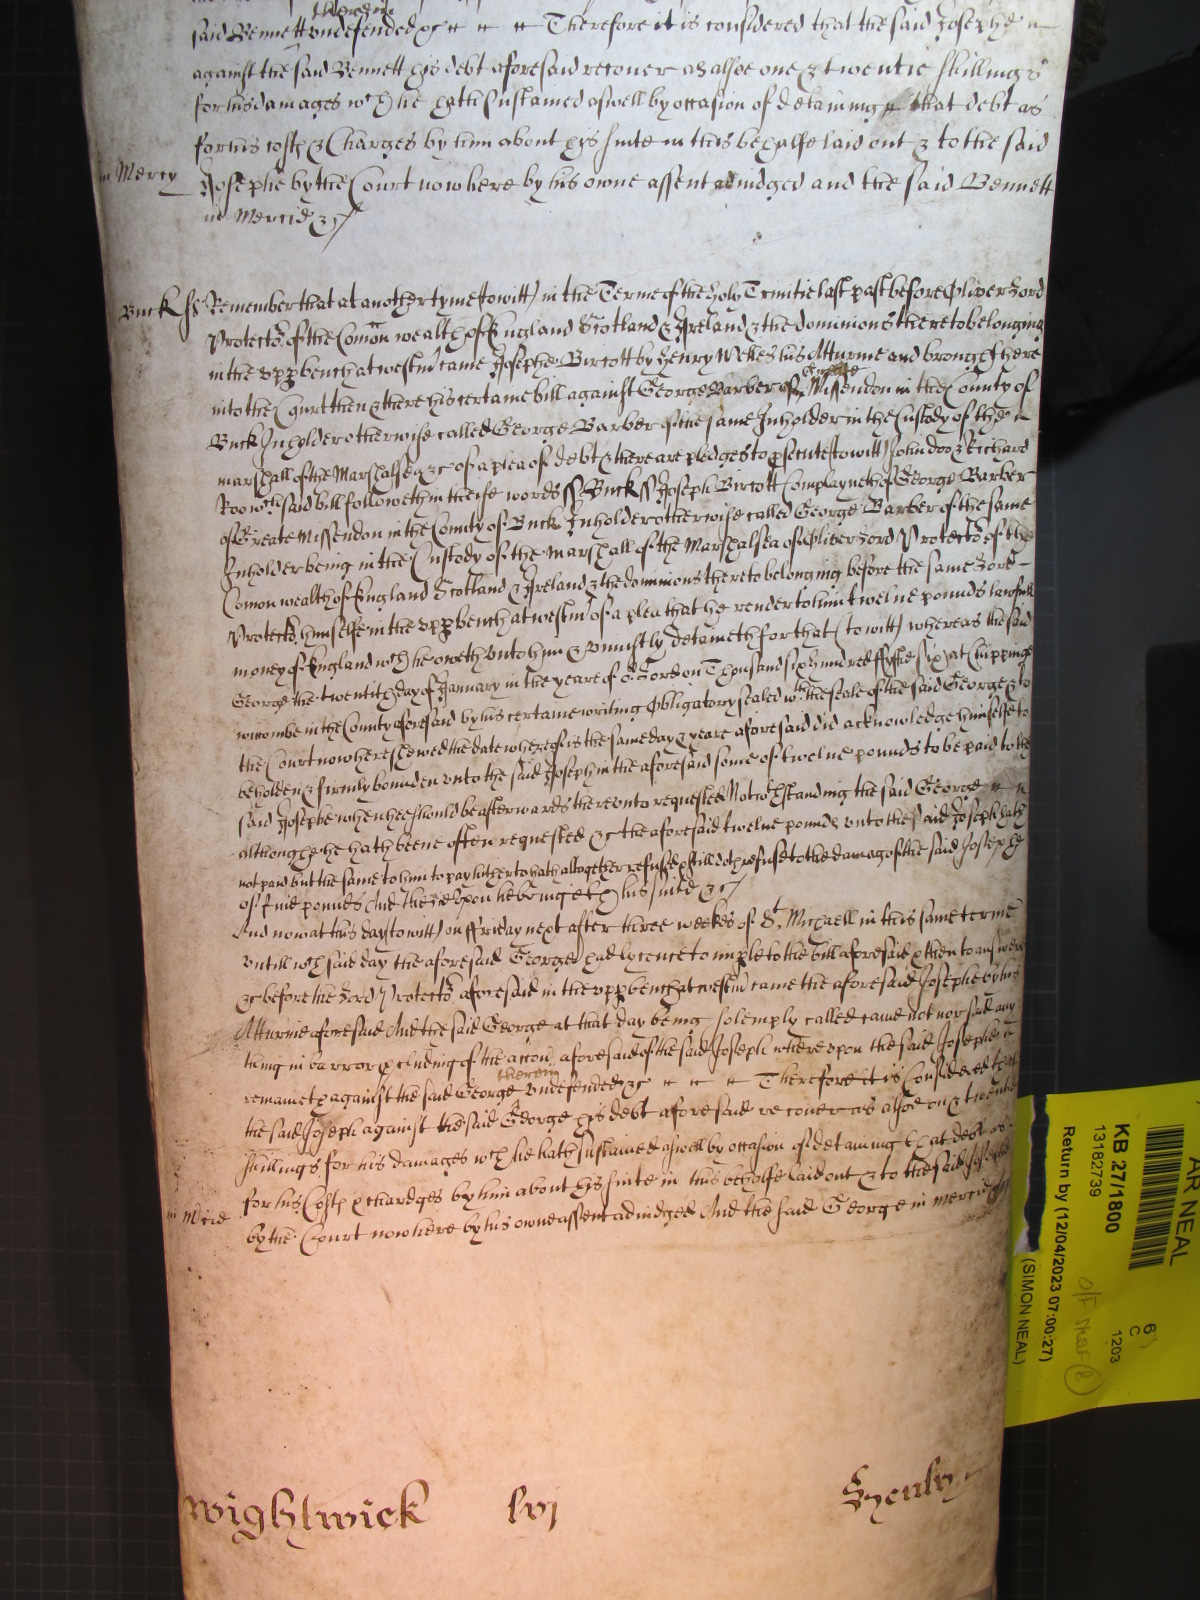 therein
said Bennett undefended &c " " " Therefore it is considered that the said Josephe
against the said Bennett his debt aforesaid recover as alsoe one & twentie shillings
for his damages wch he hath sustained aswell by occasion of detaining that debt as
for his costs & Charges by him about his suite in this behalfe laid out & to the said
in Mercy
Josephe by the Court now here by his owne assent adiudged and the said Bennett
in Mercie &c
Buck ss Remember that at another tyme (to witt) in the Terme of the holy Trinitie last past before Oliver Lord
Protector of the Comon wealth of England Scotland & Ireland & the dominions thereto belonging
in the upp bench at westm came Josephe Bircott by Henry Welles his Atturnie and brought here
Greate
into the Court then & there his certaine bill against George Barber of Missendon in the County of
Buck Inholder otherwise called George Barber of the same Inholder in the Custody of the
marshall of the Marshalsea &c of a plea of debt & there are pledges to psecute (to witt) John doo & Richard
Roo wch said bill followeth in theise words ss Buck ss Joseph Bircott Complayneth of George Barber
of Greate Missendon in the County of Buck Inholder otherwise called George Barber of the same
Inholder being in the Custody of the Marshall of the Marshalsea of Oliver Lord Protector of the
Comon wealth of England Scotland & Ireland & the dominions thereto belonging before the same Lord
Protector himselfe in the upp bench at westm of a plea that he render to him twelve pounds lawfull
money of England wch he oweth unto him & uniustly detaineth for that (to witt) whereas the said
George the twentith day of January in the yeare of or Lord on Thousand six hundred fyftie six at Chipping
wicombe in the County aforesaid by his certaine writing Obligatory sealed wth the seale of the said George & to
the Court now here shewed the date whereof is the same day & yeare aforesaid did acknowledge himselfe to
be holden & firmly bounden unto the said Joseph in the aforesaid some of twelve pounds to be paid to the
said Josephe when hee should be afterwards thereunto requested Notwthstanding the said George " "
although he hath beene often requested &c the aforesaid twelve pounds unto the said Joseph hath
not paid but the same to him to pay hitherto hath altogether refused & still doth refuse to the damage of the said Josephe
of five pounds And thereupon he bringeth his suite &c
And now at this day (to witt) on ffriday next after three weekes of St. Michaell in this same terme
untill wch said day the aforesaid George had lycence to imple to the bill aforesaid & then to answere
&c before the Lord Protector aforesaid in the upp bench at westm came the aforesaid Josephe by his
Atturnie aforesaid And the said George at that day being solemply called came not nor said any
thing in barr or pcluding of the accon aforesaid of the said Joseph whereupon the said Josephe
therein
remaineth against the said George undefended &c " " " Therefore it is Considered that
the said Joseph against the said George his debt aforesaid recover as alsoe on & twentie
shillings for his damages wch he hath sustained aswell by occasion of detaining that debt as
for his Costs & chardges by him about his suite in this behalfe laid out & to the said Josephe
in Mcie
by the Court now here by his owne assent adiudged And the said George in mercie &c
Wightwick
lvj
Henly
AR NEAL
6)
C
1203
KB 27/1800
13182739
Return by (12/04/2023 07:00:27)
(SIMON NEAL)